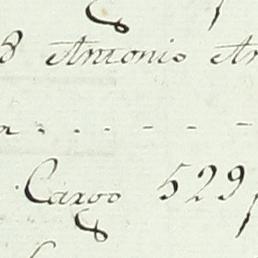 8 Antonio An
Cargo 529